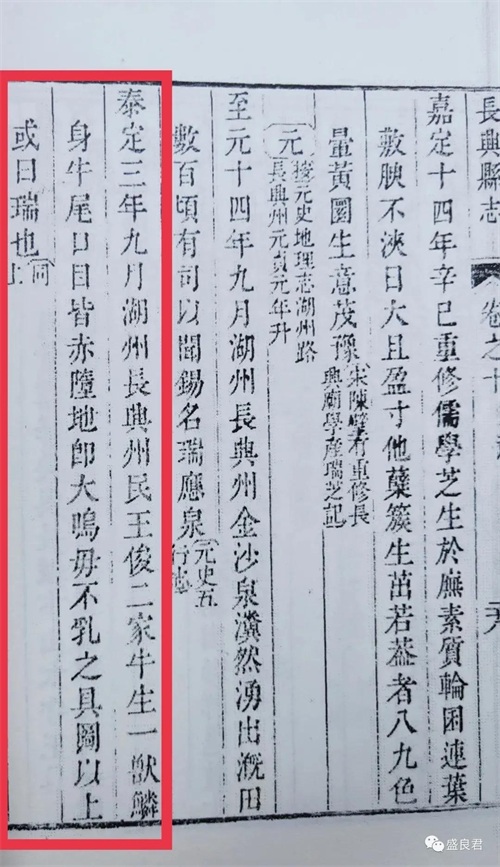 長興縣志
卷之
嘉定十四年辛巳重修儒學芝生於廡素質輪囷連葉
敷腴不浹日大且盈寸他蘖簇生茁若葢者八九色
暈黃圜生意茂豫
宋陳 重修長
興廟學產瑞芝記
元
按元史地理志湖州路
長興州元貞元年升
至元十四年九月湖州長興州金沙泉瀵然湧出溉田
數百頃有司以聞錫名瑞應泉
元史五
行志
泰定三年九月湖州長興州民王俊二家牛生一獸鱗
身牛尾口目皆赤墮地即大鳴毋不乳之具圖以上
或曰瑞也
同
上
盛良君